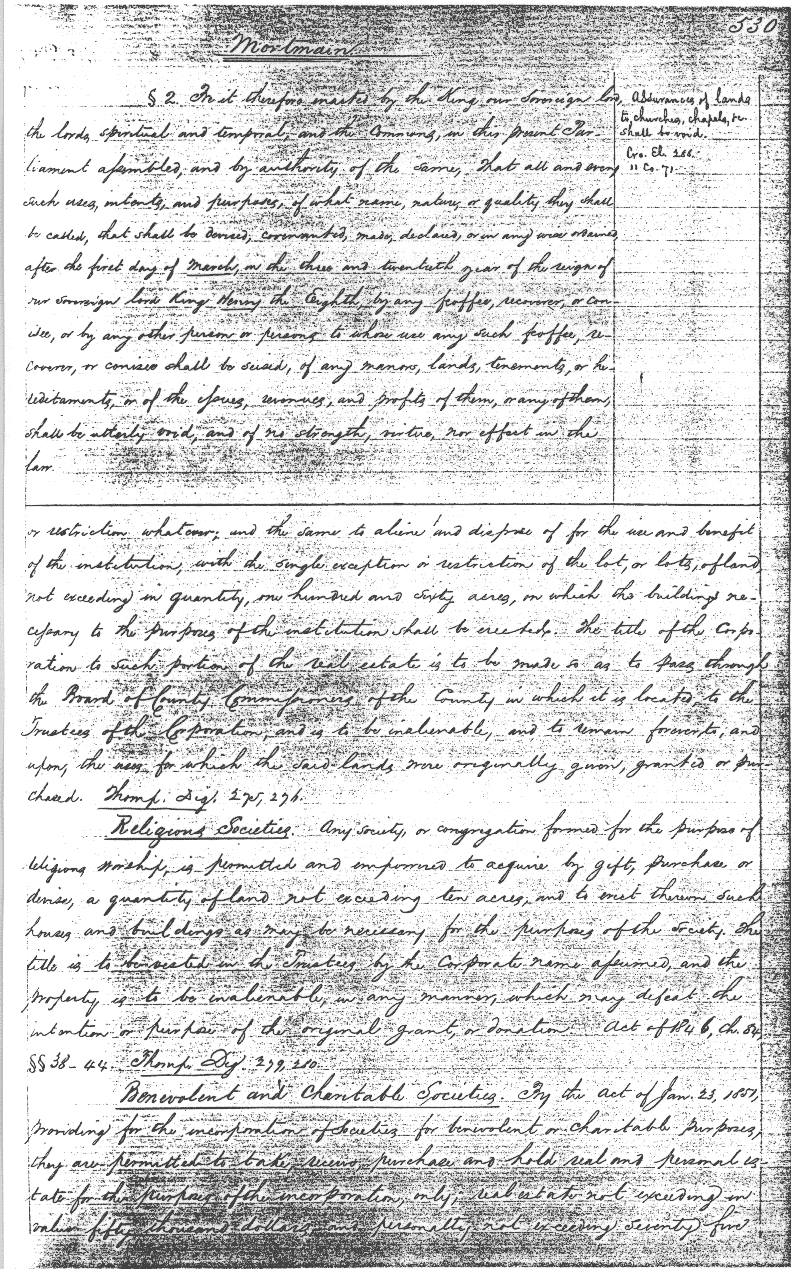 530
Mortmain
§ 2. Be it therefore enacted by the King our Sovereign lord,
the lords, spiritual and temporal, and the Commons, in this present Par-
liament assembled, and by authority of the same, That all and every
such uses, intents, and purposes, of what name, nature, or quality they shall
be called, that shall be devised, covenanted, made, declared, or in any wise ordained,
after the first day of March, in the three and twentieth year of the reign of
our Sovereign lord King Henry the Eighth, by any feoffee, recoverer, or con-
isee, or by any other person or persons to whose use any such feoffee, re-
coverer, or conisee shall be seised, of any manors, lands, tenements, or he-
reditaments, or of the issues, revenues, and profits of them, or any of them,
shall be utterly void, and of no strength, virtue, nor effect in the
law.
Assurances of lands
to churches, chapels, &c.
shall be void.
Cro. El. 266.
11 Co. 71.
or restriction whatever; and the same to aliene and dispose of for the use and benefit
of the institution, with the single exception or restriction of the lot, or lots, of land,
not exceeding in quantity, one hundred and sixty acres, on which the buildings ne-
cessary to the purposes of the institution shall be erected. The title of the Corpo-
ration to such portion of the real estate is to be made so as to pass through
the Board of County Commissioners of the County in which it is located, to the
Trustees of the Corporation, and is to be inalienable, and to remain forever, to, and
upon, the uses for which the said lands were originally given, granted or pur-
chased. Thomp. Dig. 275, 276.
Religious Societies. Any society, or congregation formed for the purpose of
religious worship, is permitted and empowered to acquire by gift, purchase or
devise, a quantity of land not exceeding ten acres, and to erect thereon such
houses and buildings as may be necessary for the purposes of the Society. The
title is to be vested in the Trustees by the Corporate name assumed, and the
property is to be inalienable, in any manner, which may defeat the
intention or purpose of the original grant, or donation. Act of 1846, Ch. 84,
§§ 38-44. Thomp. Dig. 279, 280.
Benevolent and Charitable Societies. By the Act of Jan. 23, 1851,
providing for the incorporation of Societies for benevolent or charitable purposes,
they are permitted to take, receive, purchase and hold real and personal es-
tate for the purposes of the incorporation, only, real estate not exceeding in
value fifty thousand dollars, and personalty not exceeding seventy five